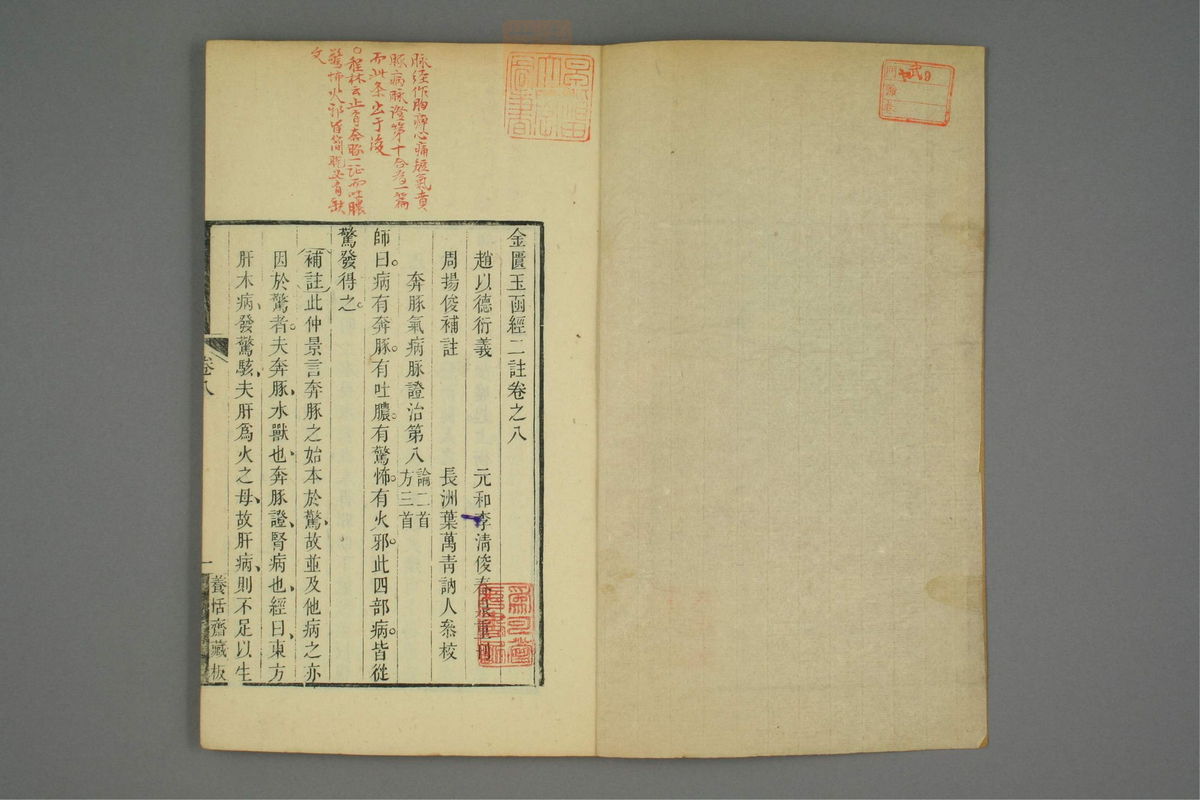 脉經作胸痺心痛短氣賁
豚病脉證第十合爲一篇
而此条出于後
○程林云止有奔豚一証而吐膿
驚怖火邪皆簡脱必有缺
文
金匱玉函經二註卷之八
趙以德衍義 元和李清俊春泉重刊
周揚俊補註 長洲葉萬青訥人叅校
奔豚氣病脉證治第八 論二首 方三首
師曰病有奔豚有吐膿有驚怖有火邪此四部病皆從
驚發得之
補註此仲景言奔豚之始本於驚故並及他病之亦
因於驚者夫奔豚水獸也奔豚證腎病也經曰東方
肝木病發驚駭夫肝爲火之母故肝病則不足以生
卷八
一
養恬齋藏板